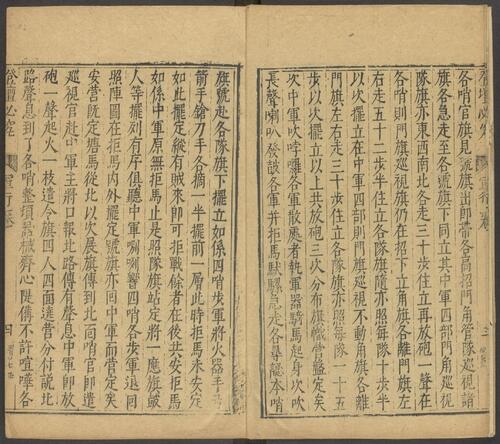 各哨官旗見號旗出即帶各高招門角管隊巡視諸
旗各急走至各號旗下同立其中軍四部門角巡視
隊旗亦東西南北各走三十步住立再放砲一聲在
各哨則門旗巡視旗仍在招下立角旗各離門旗左
右走五十二步半住立各隊旗隨亦照每隊十步半
以次擺立在中軍四部則門旗巡視不動角旗各離
門旗左右走三十步住立各隊旗亦照每隊一十五
步以次擺立以上共放砲三次分布旗幟營盤定矣
次中軍吹哱囉各軍散應者執軍器騎馬起身次吹
長聲喇叭發談各軍并拒馬馱騾急走各尋認本哨
旗號赴各隊旗下擺立如係四哨步軍將火器手
箭手鎗刀手各摘一半擺前一層此時拒馬未安定
如此擺定縱有賊來即可拒戰餘者在後共安拒馬
如係中軍原無拒馬止是照隊旗站定將一應旗鼓
人等擺列有序俱聽中軍喇叭響四哨各步軍退回
照陣圖在拒馬內外擺定號旗亦回中軍而營定矣
安營既定塘馬從此以次展旗傳到此面哨官即遣
巡視官赴中軍主將口報北路傳有聲息中軍即放
砲一聲起火一枝遣令旗四人四面遶營分付說北
路聲息到了各哨整頓器械齊心隄備不許喧嘩各
登壇必究